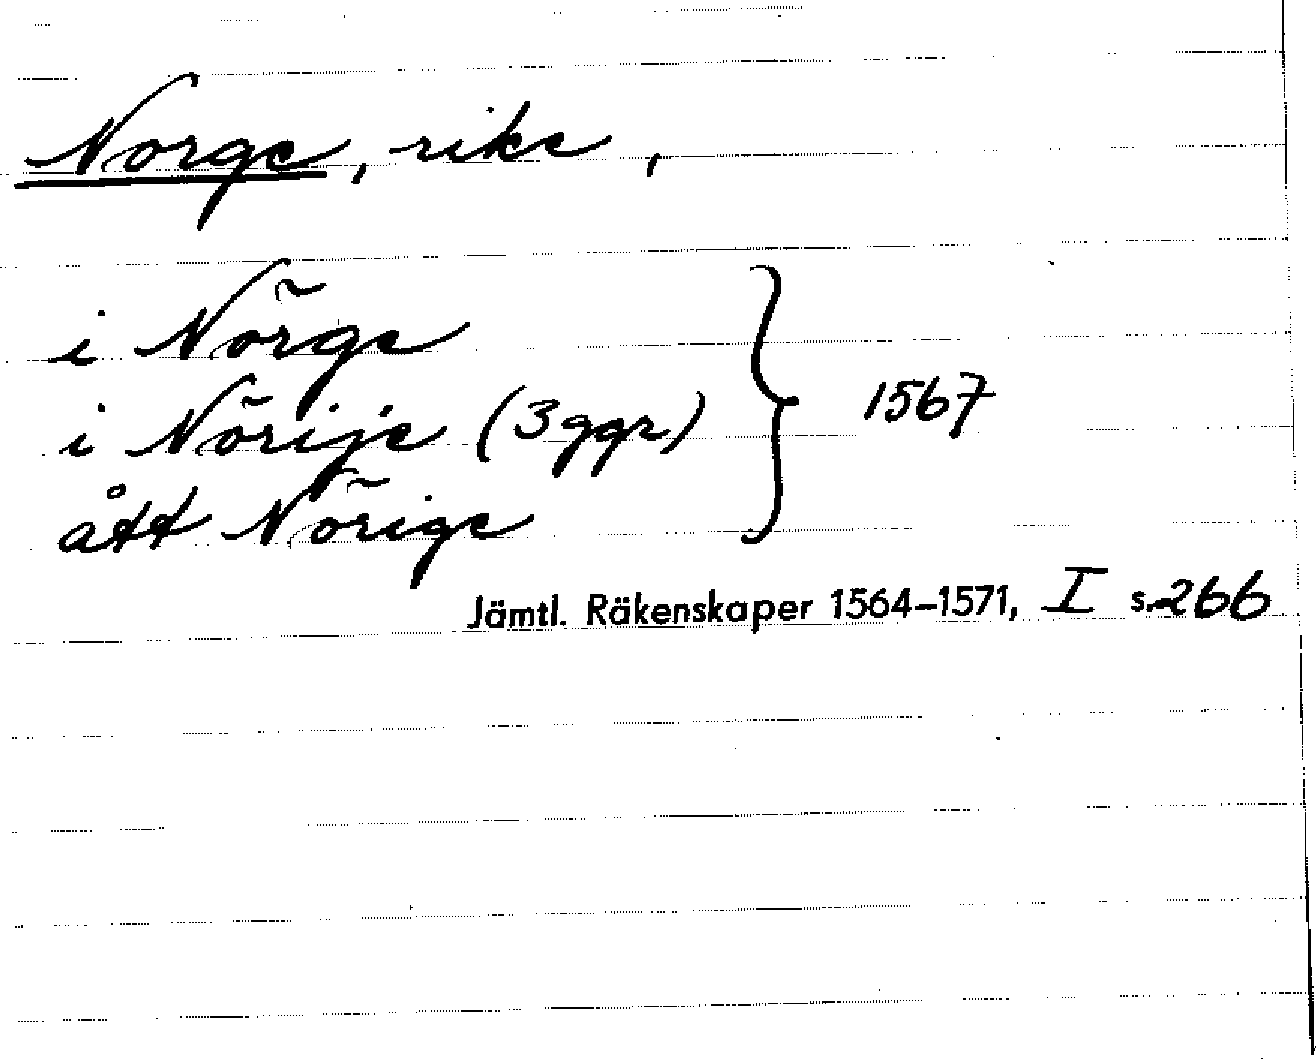 Norge, rike,
i Nõrge
i Nõrije (3 ggr) } 1567
ått Nõrige
Jämtl. Räkenskaper 1564–1571, I s. 266